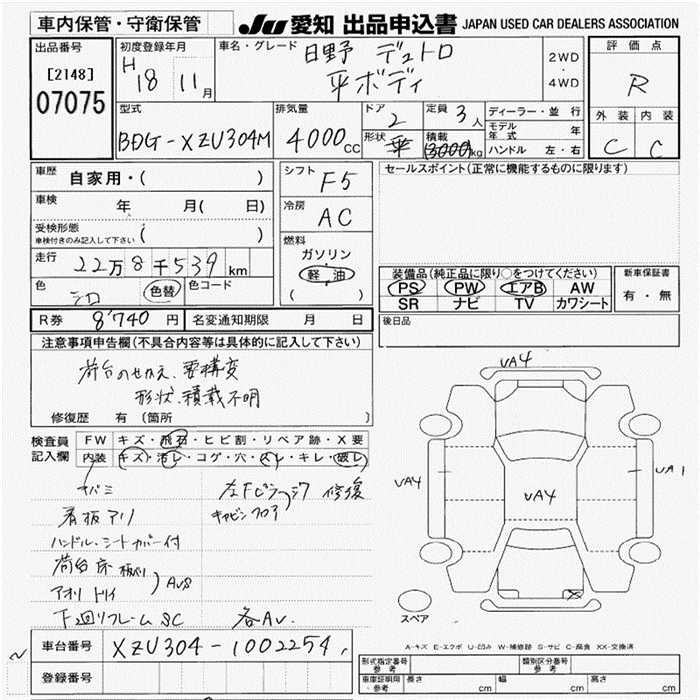 車内保管・守衛保管
JU 愛知 出品申込書 JAPAN USED CAR DEALERS ASSOCIATION
出品番号
[2148]
07075
初度登録年月
H 18 11月
車名・グレード 日野 デュトロ
平ボディ
2WD
・
4WD
評価点
R
外装 内装
C C
型式
BDG-XZU304M
排気量
4000cc
ドア 2
形状 平
定員 3人
積載 3000kg
ディーラー・並行
モデル年式 年
ハンドル 左・右
車歴 自家用・( )
車検 年 月( 日)
受検形態
車検付きのみ記入して下さい ( )
走行 22万8千539km
色 シロ 色替 色コード
シフト F5
冷房 AC
燃料
ガソリン
軽油
( )
セールスポイント(正常に機能するものに限ります)
装備品(純正品に限り○をつけてください)
PS PW エアB AW
SR ナビ TV カワシート
新車保証書
有・無
R券 8740円 名変通知期限 月 日
後日品
注意事項申告欄(不具合内容等は具体的に記入して下さい)
荷台のせかえ、要構変
形状、積載不明
修復歴 有 (箇所 )
検査員記入欄
FW キズ・飛石・ヒビ割・リペア跡・X要
内装 キズ・汚レ・コゲ・穴・スレ・キレ・破レ
サバミ
看板アリ
ハンドル・シートカバー付
荷台床板バリ
アオリ トリイ
AUS
下回リフレームSC
修復
キャビンフロア
各AU
VA4
VA4
VA4
VA1
スペア
A-キズ E-エクボ U-凹み W-補修跡 S-サビ C-腐食 XX-交換済
車台番号 XZU304-1002254
登録番号
形式指定番号 参考
類別区分番号 参考
車庫証明用 参考 長さ cm 幅 cm 高さ cm